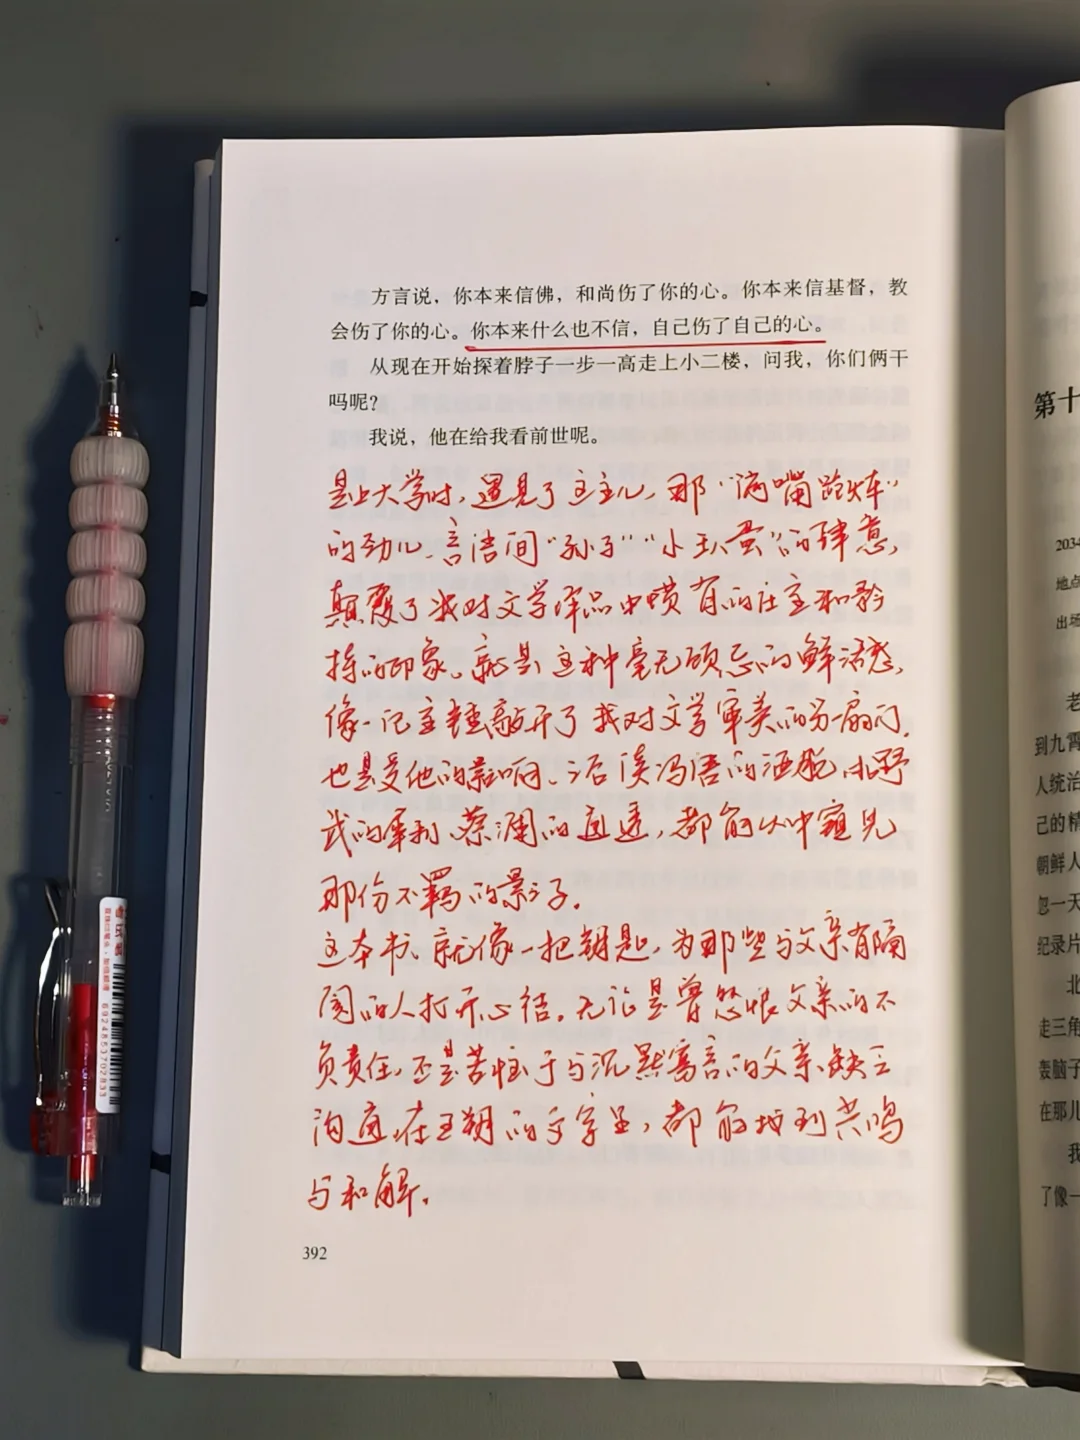 方言说，你本来信佛，和尚伤了你的心。你本来信基督，教
会伤了你的心。你本来什么也不信，自己伤了自己的心。
从现在开始探着脖子一步一高走上小二楼，问我，你们俩干
吗呢？
我说，他在给我看前世呢。
是上大学时，遇见了这主儿，那“满嘴跑火车”
的劲儿、言语间“孙子”“小王八蛋”的肆意，
颠覆了我对文学作品中惯有的庄重和矜
持的印象。就是这种毫无顾忌的鲜活感，
像一记重锤敲开了我对文学审美的另一扇门。
也是受他的影响、后读冯唐的洒脱、北野
武的犀利、蔡澜的通透，都能从中窥见
那份不羁的影子。
这本书，就像一把钥匙，为那些与父亲有隔
阂的人打开心结。无论是曾怨恨父亲的不
负责任，还是苦恼于与沉默寡言的父亲缺乏
沟通，在王朔的文字里，都能找到共鸣
与和解。
392
第十
2034
地点
出场
老
到九霄
人统治
己的精
朝鲜人
忽一天
纪录片
北
走三角
轰脑子
在那儿
我
了像一
6924853702833